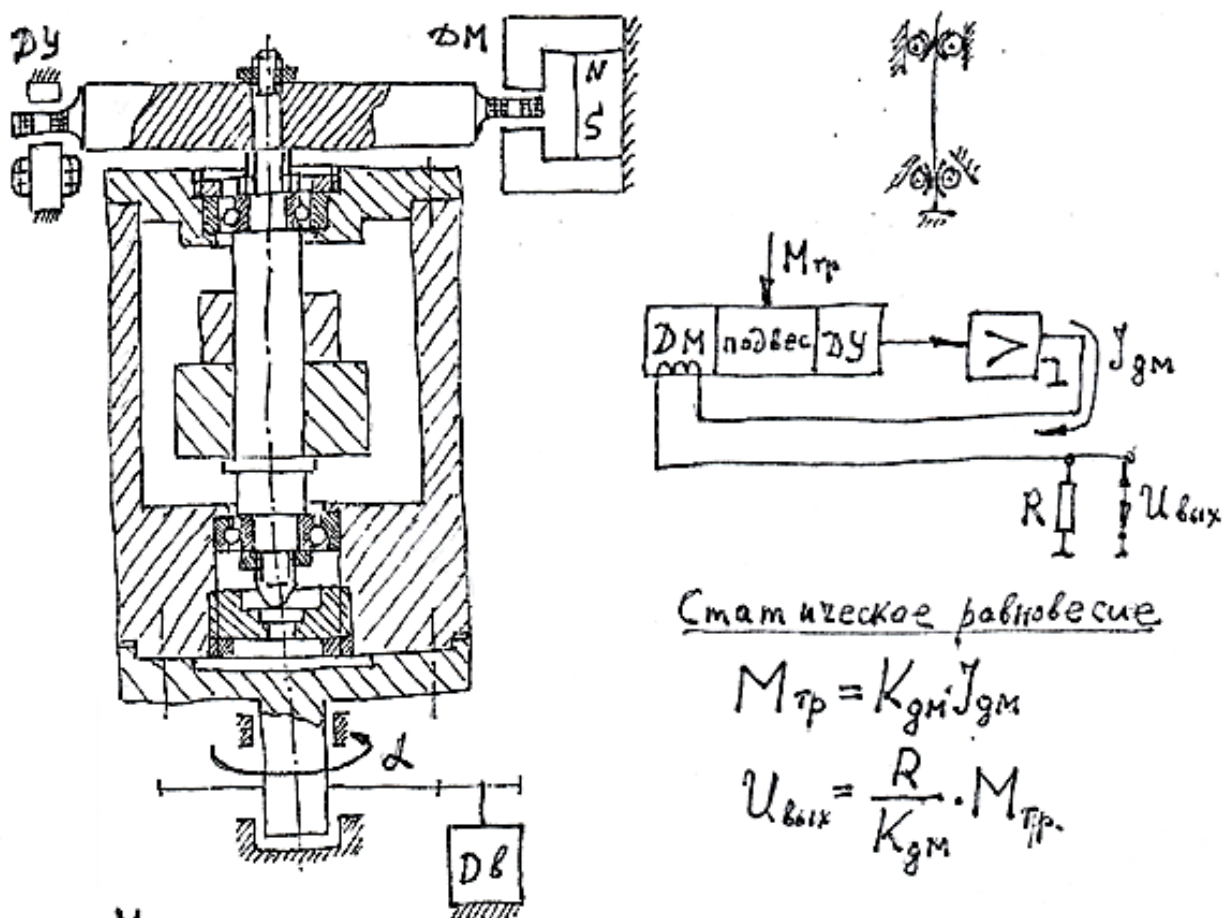 ДУ
ДМ
N
S
Mтр
ДМ подвес ДУ > 1 Jдм
R Uвых
Статическое равновесие
Mтр = Kдм·Jдм
α
Uвых = R/Kдм · Mтр.
Дв